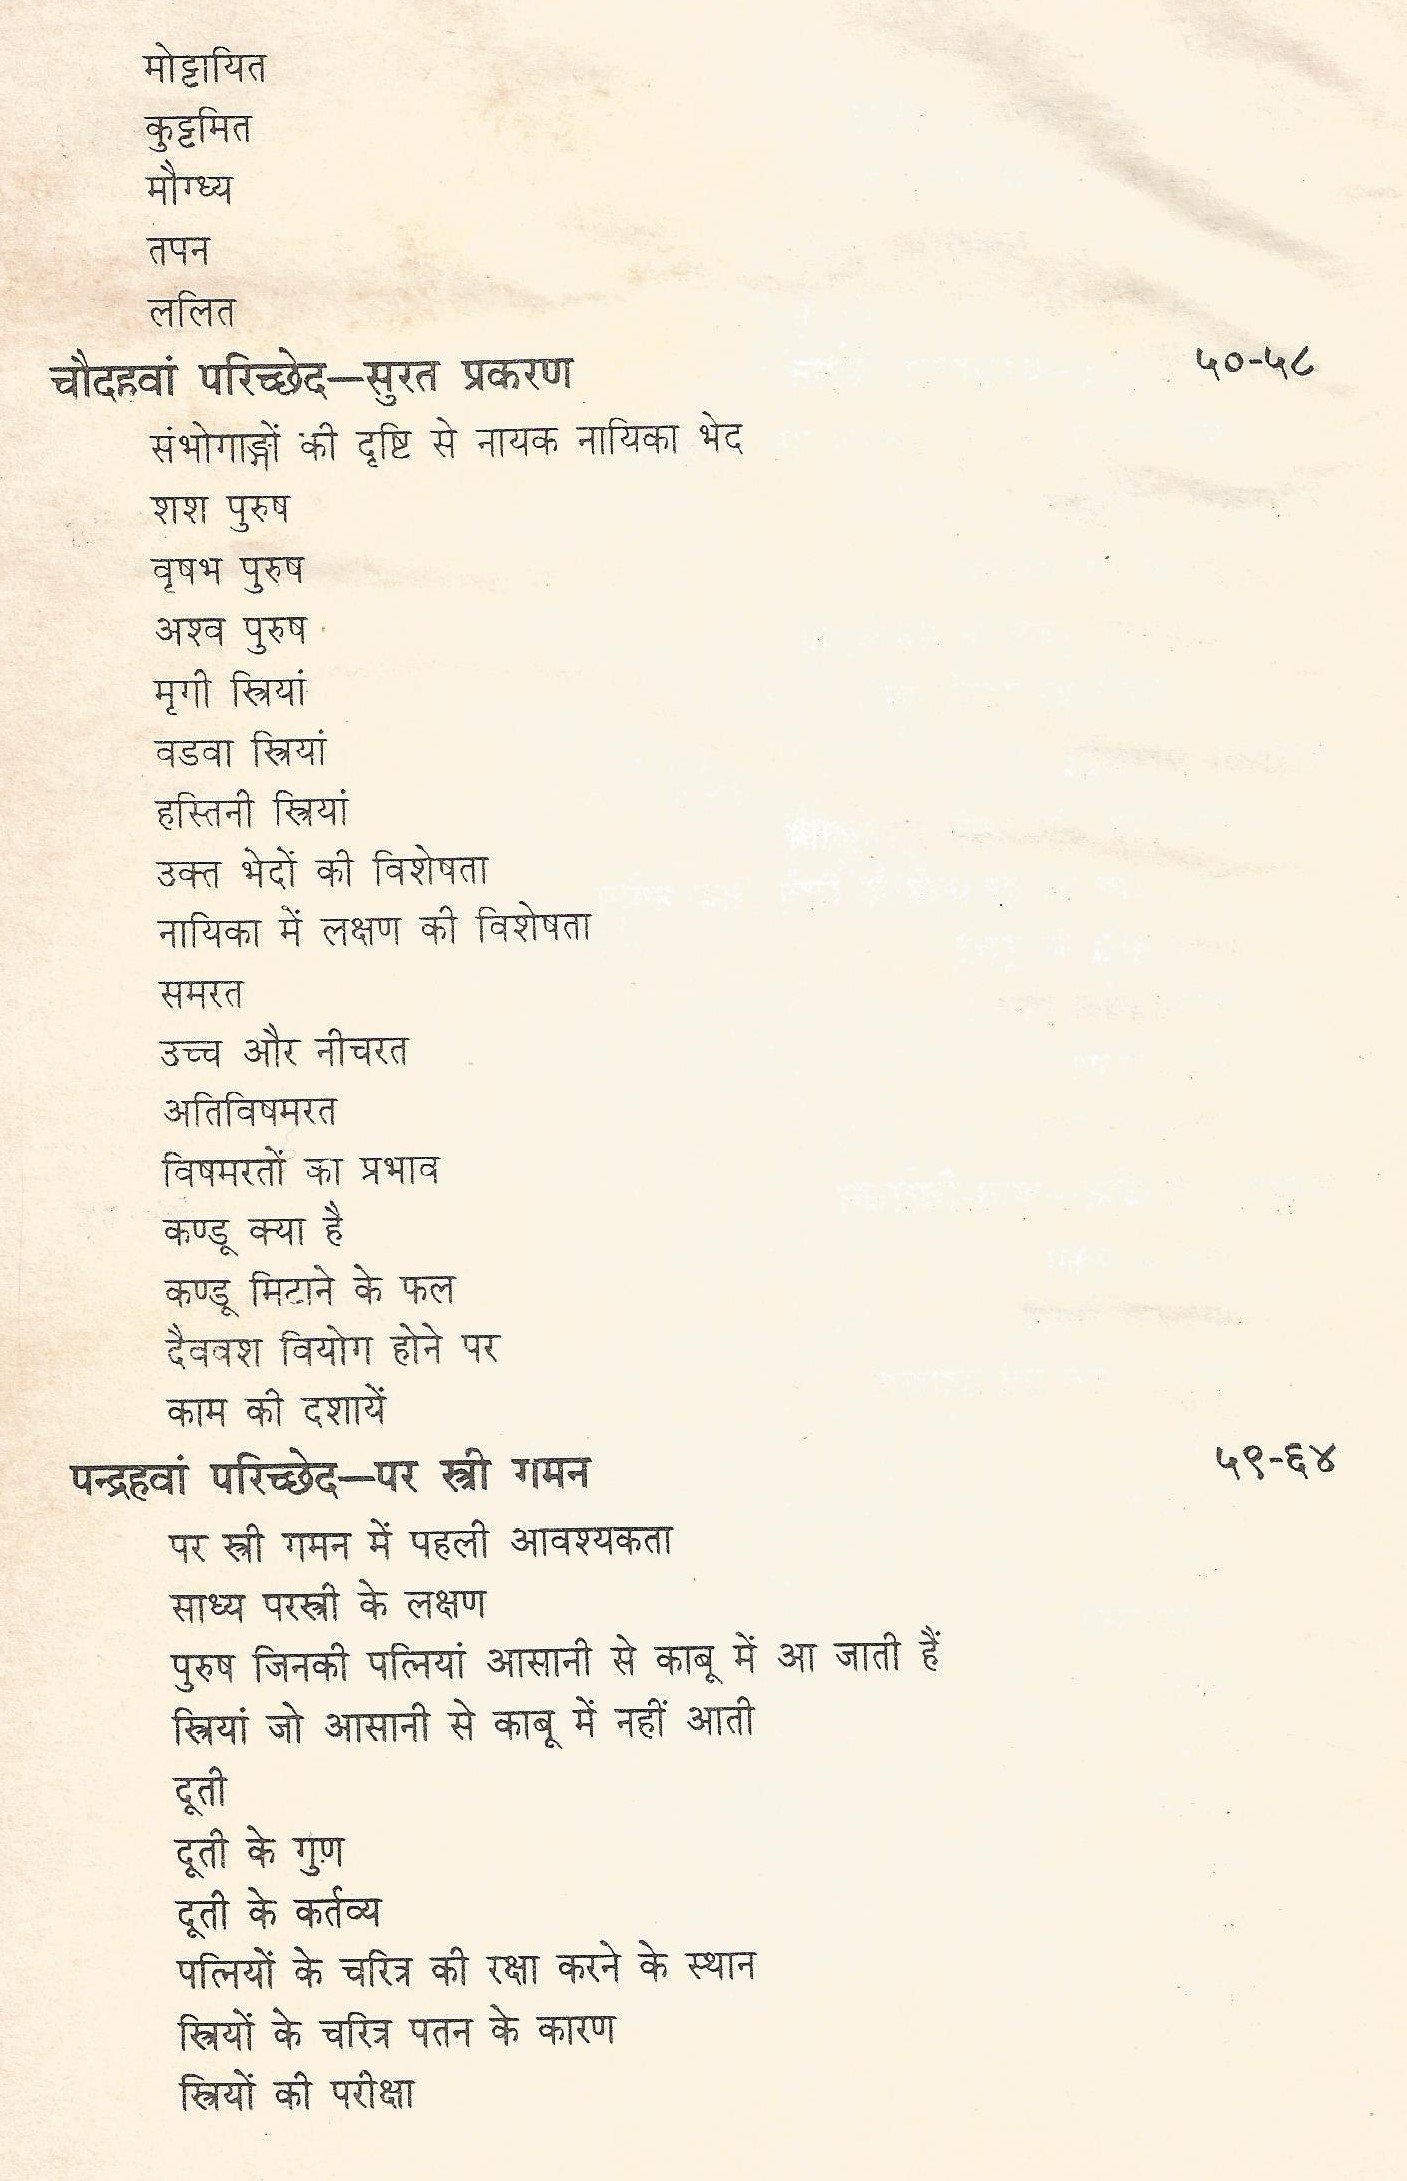 मोट्टायित
कुट्टमित
मौग्ध्य
तपन
ललित
चौदहवां परिच्छेद—सुरत प्रकरण ५०-५८
संभोगाङ्गों की दृष्टि से नायक नायिका भेद
शश पुरुष
वृषभ पुरुष
अश्व पुरुष
मृगी स्त्रियां
वडवा स्त्रियां
हस्तिनी स्त्रियां
उक्त भेदों की विशेषता
नायिका में लक्षण की विशेषता
समरत
उच्च और नीचरत
अतिविषमरत
विषमरतों का प्रभाव
कण्डू क्या है
कण्डू मिटाने के फल
दैववश वियोग होने पर
काम की दशायें
पन्द्रहवां परिच्छेद—पर स्त्री गमन ५९-६४
पर स्त्री गमन में पहली आवश्यकता
साध्य परस्त्री के लक्षण
पुरुष जिनकी पत्नियां आसानी से काबू में आ जाती हैं
स्त्रियां जो आसानी से काबू में नहीं आती
दूती
दूती के गुण
दूती के कर्तव्य
पत्नियों के चरित्र की रक्षा करने के स्थान
स्त्रियों के चरित्र पतन के कारण
स्त्रियों की परीक्षा